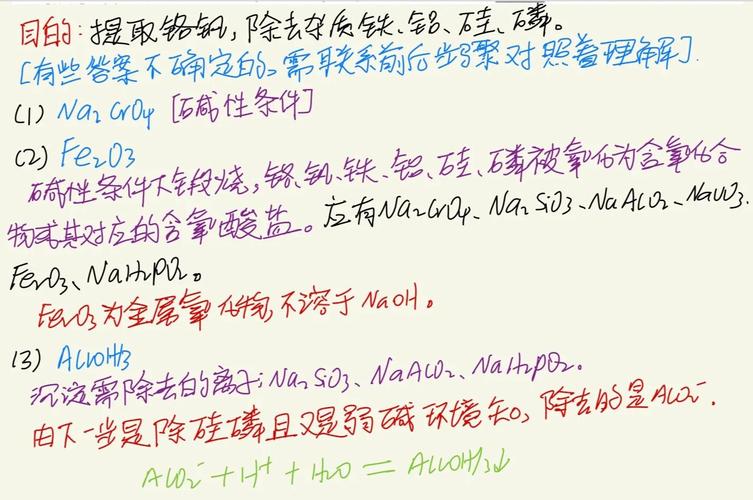 目的：提取铬钒，除去杂质铁、铝、硅、磷。
[有些答案不确定的，需联系前后步骤对照着理解].
(1) Na2CrO4 [碱性条件]
(2) Fe2O3
碱性条件下煅烧，铬、钒、铁、铝、硅、磷被氧化为含氧化合
物或其对应的含氧酸盐。应有Na2CrO4、Na2SiO3、NaAlO2、NaVO3.
Fe2O3、NaH2PO2。
Fe2O3为金属氧化物，不溶于NaOH。
(3) Al(OH)3
沉淀需除去的离子：Na2SiO3、NaAlO2、NaH2PO2。
由下一步是除硅磷且又是弱碱环境知，除去的是AlO2-.
AlO2- + H+ + H2O = Al(OH)3↓